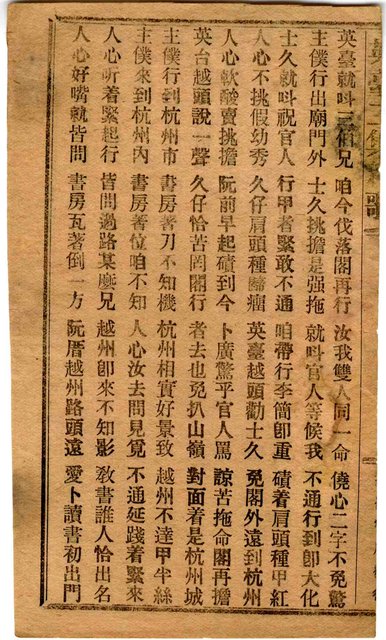 英臺就呌三伯兄 咱今伐落閣再行 汝我雙人同一命 僥心二字不免驚
主僕行出廟門外 士久挑擔是强拖 就呌官人等候我 不通行到卽大化
士久就呌祝官人 行甲者緊敢不通 咱帶行李簡卽重 磧着肩頭種甲紅
人心不挑假幼秀 久仔肩頭種瘤 英臺越頭勸士久 免閣外遠到杭州
人心軟酸賣挑擔 阮前早起磧到今 卜廣驚乎官人罵 諒苦拖命閣再擔
英台越頭說一聲 久仔恰苦罔閣行 者去也免扒山嶺 對面着是杭州城
主僕行到杭州市 書房著刀不知機 杭州相實好景致 越州不達甲半絲
主僕來到杭州內 書房著位咱不知 人心汝去問見覓 不通延踐着緊來
人心听着緊起行 皆問過路某麽兄 越州卽來不知影 敎書誰人恰出名
人心好嘴就皆問 書房瓦著倒一方 阮厝越州路頭遠 愛卜讀書初出門